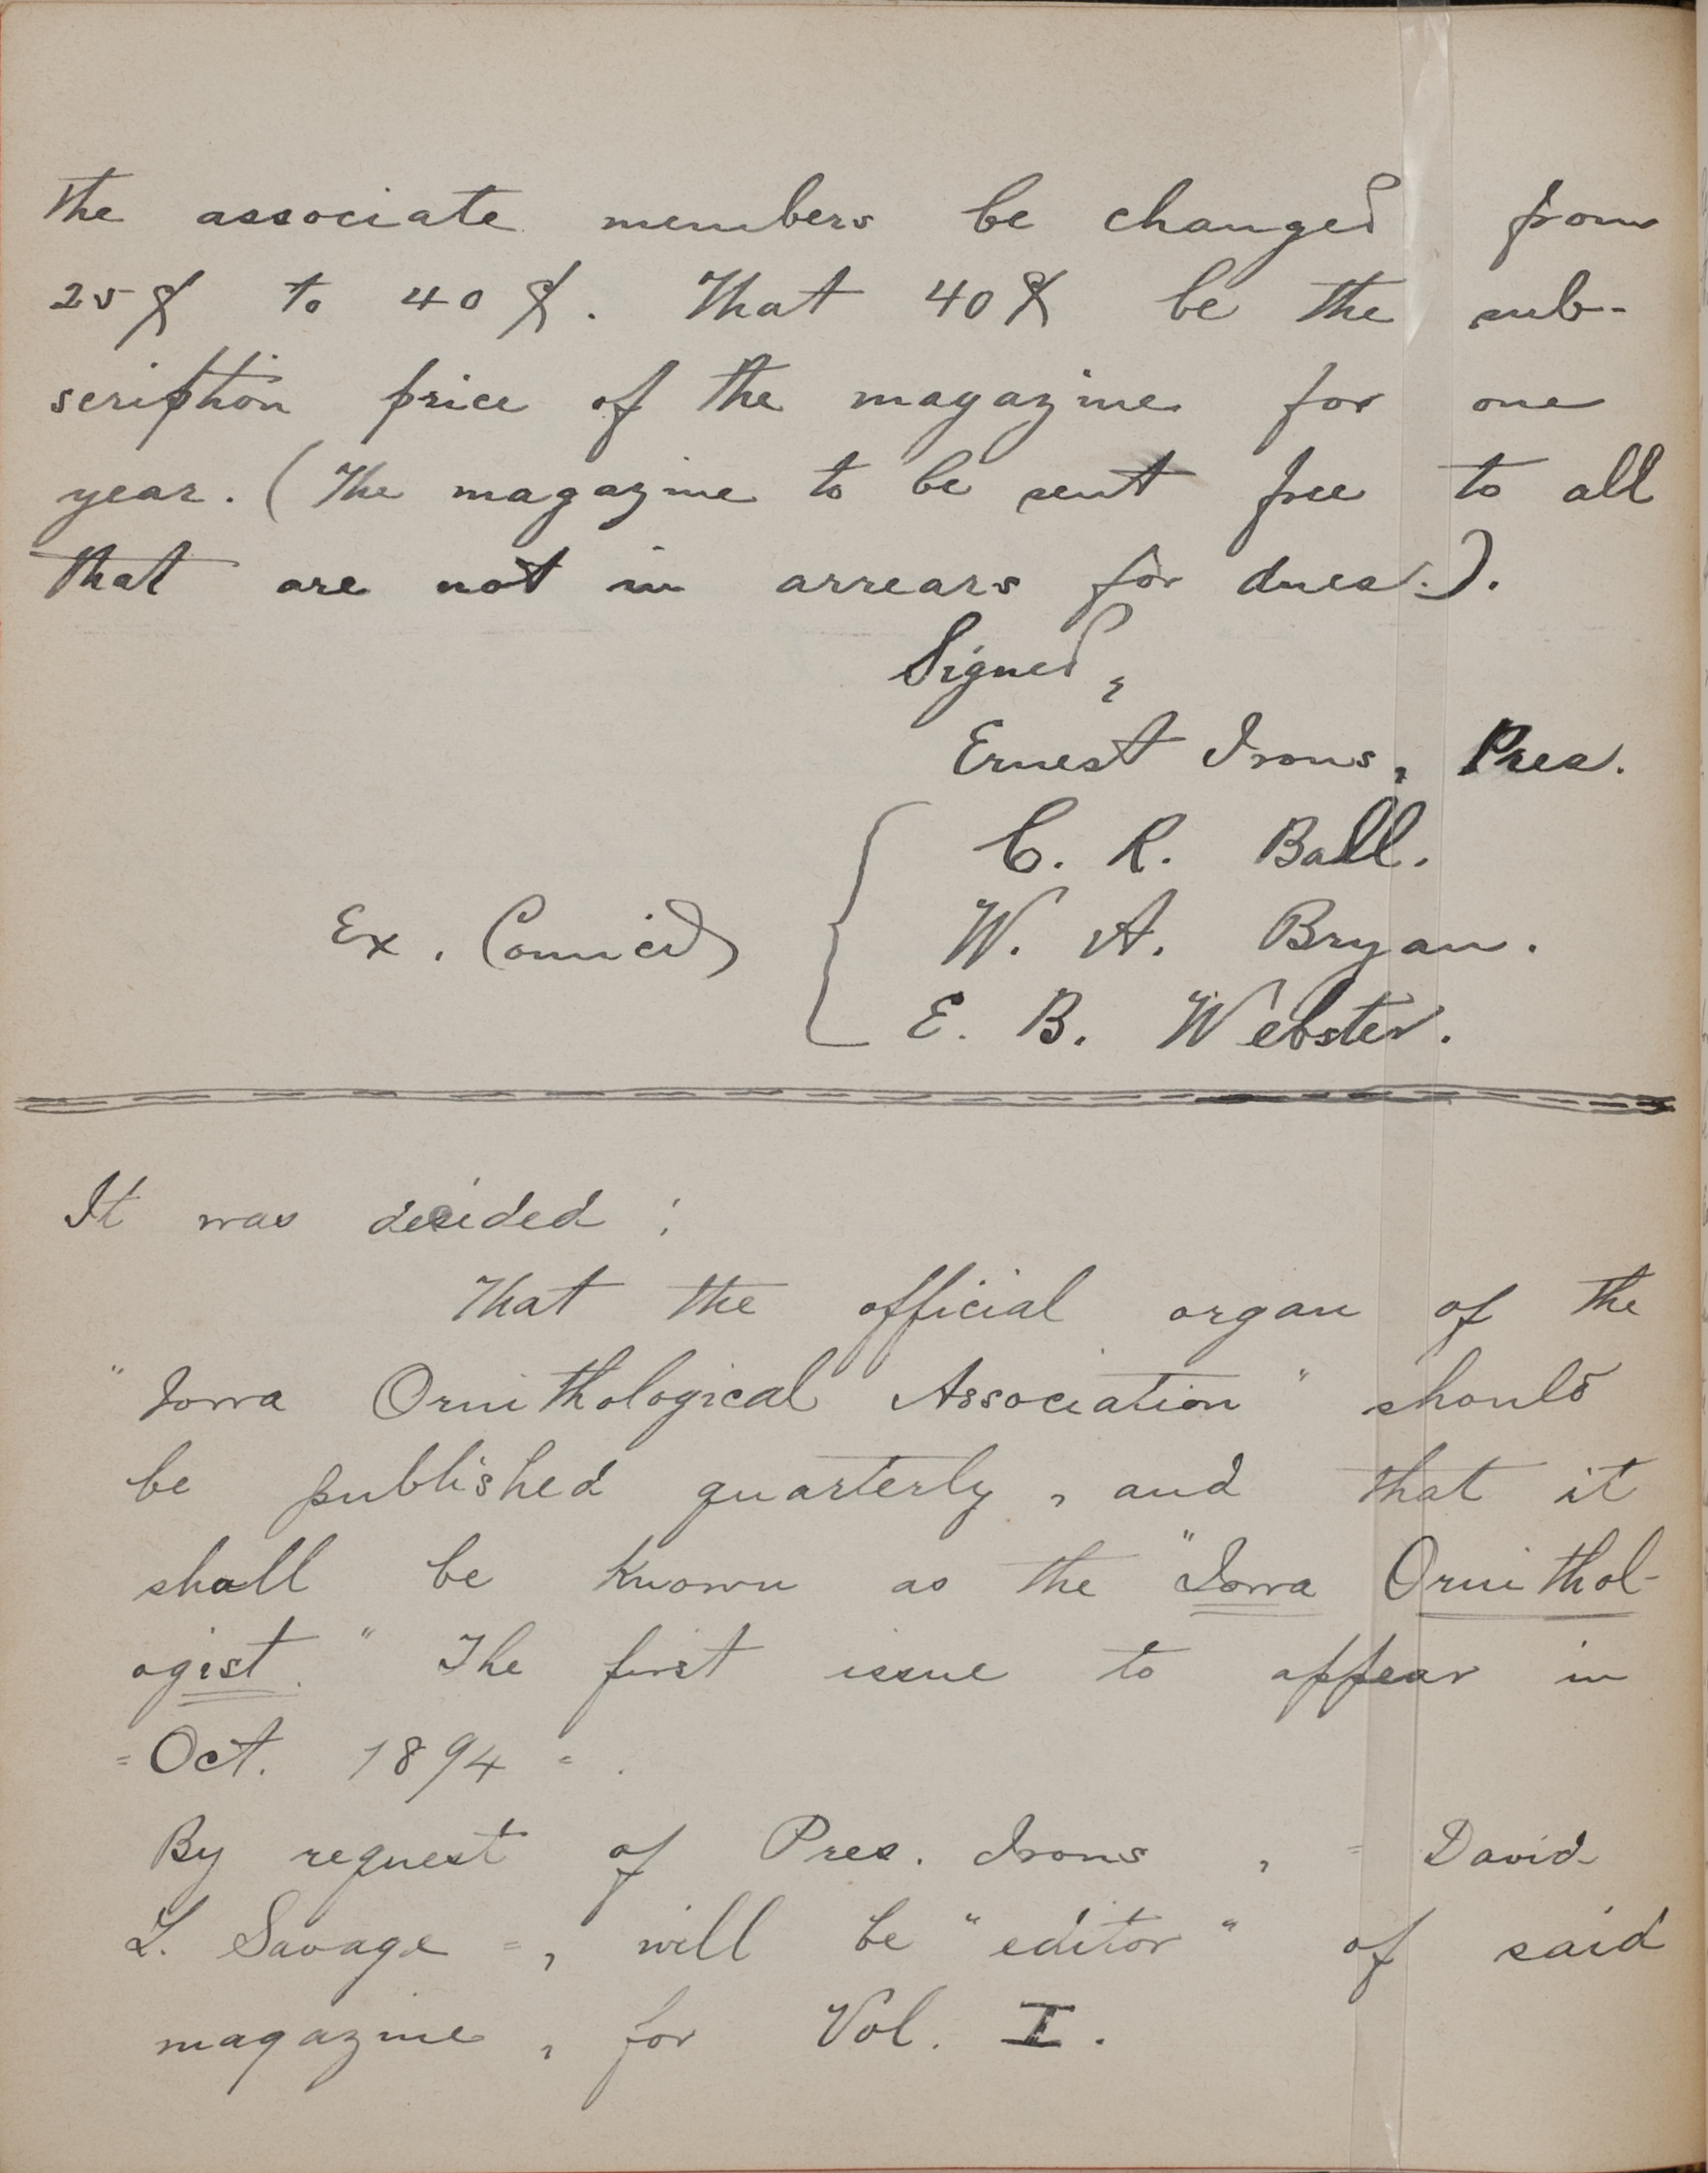 the associate members be changed from
25¢ to 40¢. That 40¢ be the sub-
scription price of the magazine for one
year. (The magazine to be sent free to all
that are not in arrears for dues.).
Signed,
Ernest Irons, Pres.
C. R. Ball.
Ex. Council { W. A. Bryan.
E. B. Webster.
It was decided :
That the official organ of the
"Iowa Ornithological Association" should
be published quarterly, and that it
shall be known as the "Iowa Ornithol-
ogist." The first issue to appear in
"Oct. 1894".
By request of Pres. Irons, "David
L. Savage", will be "editor" of said
magazine, for Vol. I.